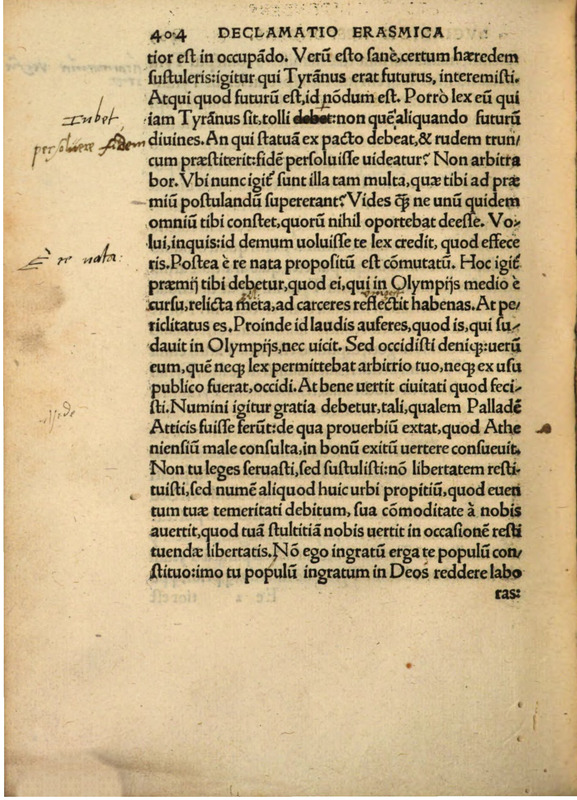 404 DECLAMATIO ERASMICA
tior est in occupãdo. Verũ esto sanè, certum hæredem
sustuleris: igitur qui Tyrãnus erat futurus, interemisti.
Atqui quod futurũ est, id nõdum est. Porrò lex eũ qui
iam Tyrãnus sit, tolli debet: non quẽ aliquando futurũ
Iubet
diuines. An qui statuã ex pacto debeat, & rudem trun/
persoluere fidem
cum præstiterit: fidẽ persoluisse uideatur? Non arbitra
bor. Vbi nunc igit̃ sunt illa tam multa, quæ tibi ad præ
miũ postulandũ supererant? Vides ꝗ̃ ne unũ quidem
omniũ tibi constet, quorũ nihil oportebat deesse. Vo/
lui, inquis: id demum uoluisse te lex credit, quod effece
È re nata.
ris. Postea è re nata propositũ est cõmutatũ. Hoc igit̃
præmij tibi debetur, quod ei, qui in Olympijs medio è
cursu, relicta meta, ad carceres reflectit habenas. At pe/
riclitatus es. Proinde id laudis auferes, quod is, qui su/
dauit in Olympijs, nec uicit. Sed occidisti deniqꝫ: uerũ
eum, quẽ neqꝫ lex permittebat arbitrio tuo, neqꝫ ex usu
publico fuerat, occidi. At bene uertit ciuitati quod feci/
sti. Numini igitur gratia debetur, tali, qualem Palladẽ
Atticis fuisse ferũt: de qua prouerbiũ extat, quod Athe
niensiũ male consulta, in bonũ exitũ uertere consueuit.
Non tu leges seruasti, sed sustulisti: nõ libertatem resti/
tuisti, sed numẽ aliquod huic urbi propitiũ, quod euen
tum tuæ temeritati debitum, sua cõmoditate à nobis
auertit, quod tuã stultitiã nobis uertit in occasionẽ resti
tuendæ libertatis. Nõ ego ingratũ erga te populũ con/
stituo: imo tu populũ ingratum in Deos reddere labo
ras: